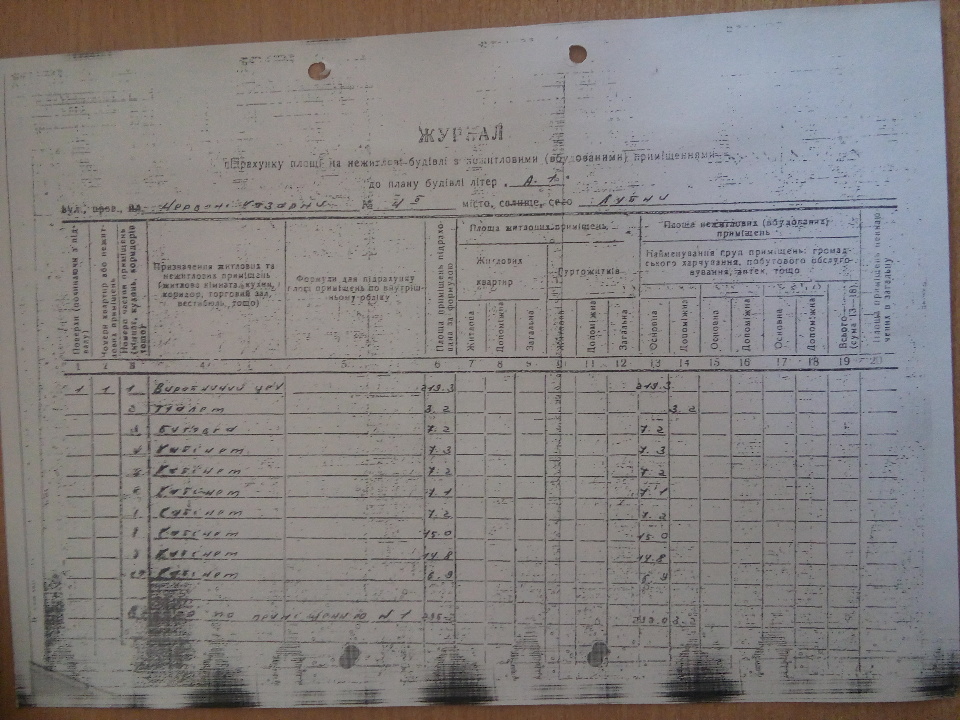 ЖУРНАЛ
підрахунку площі на нежитлові будівлі з нежитловими (вбудованими) приміщеннями
до плану будівлі літер „ А-1 "
вул., пров., пл. Червоні казарми № 4 місто, селище, село Лубни
Поверхи (починаючи з підвалу)
Номери частин приміщень (кімнат, кухонь, коридорів тощо)
Призначення житлових та нежитлових приміщень (житлова кімната, кухня, коридор, торговий зал, вестибюль, тощо)
Формули для підрахунку площі приміщень по внутрішньому обміру
Площа приміщень підрахована за формулою
Площа житлових приміщень
Житлових квартир
Гуртожитків
Площа нежитлових (вбудованих) приміщень
Найменування груп приміщень: громадського харчування, побутового обслуговування, аптек, тощо
Житлова Допоміжна Загальна Житлова Допоміжна Загальна Основна Допоміжна Основна Допоміжна Основна Допоміжна Всього (сума 13—18)
1 2 3 4 5 6 7 8 9 10 11 12 13 14 15 16 17 18 19 20
1 1 1 Виробничий цех 219.3 219.3
2 Туалет 3.2 3.2
7.2 7.2
Кабінет 7.3 7.3
Кабінет 7.2 7.2
Кабінет 7.1 7.1
Кабінет 7.2 7.2
Кабінет 15.0 15.0
Кабінет 14.8 14.8
Кабінет 6.9 6.9
по приміщенню N 1